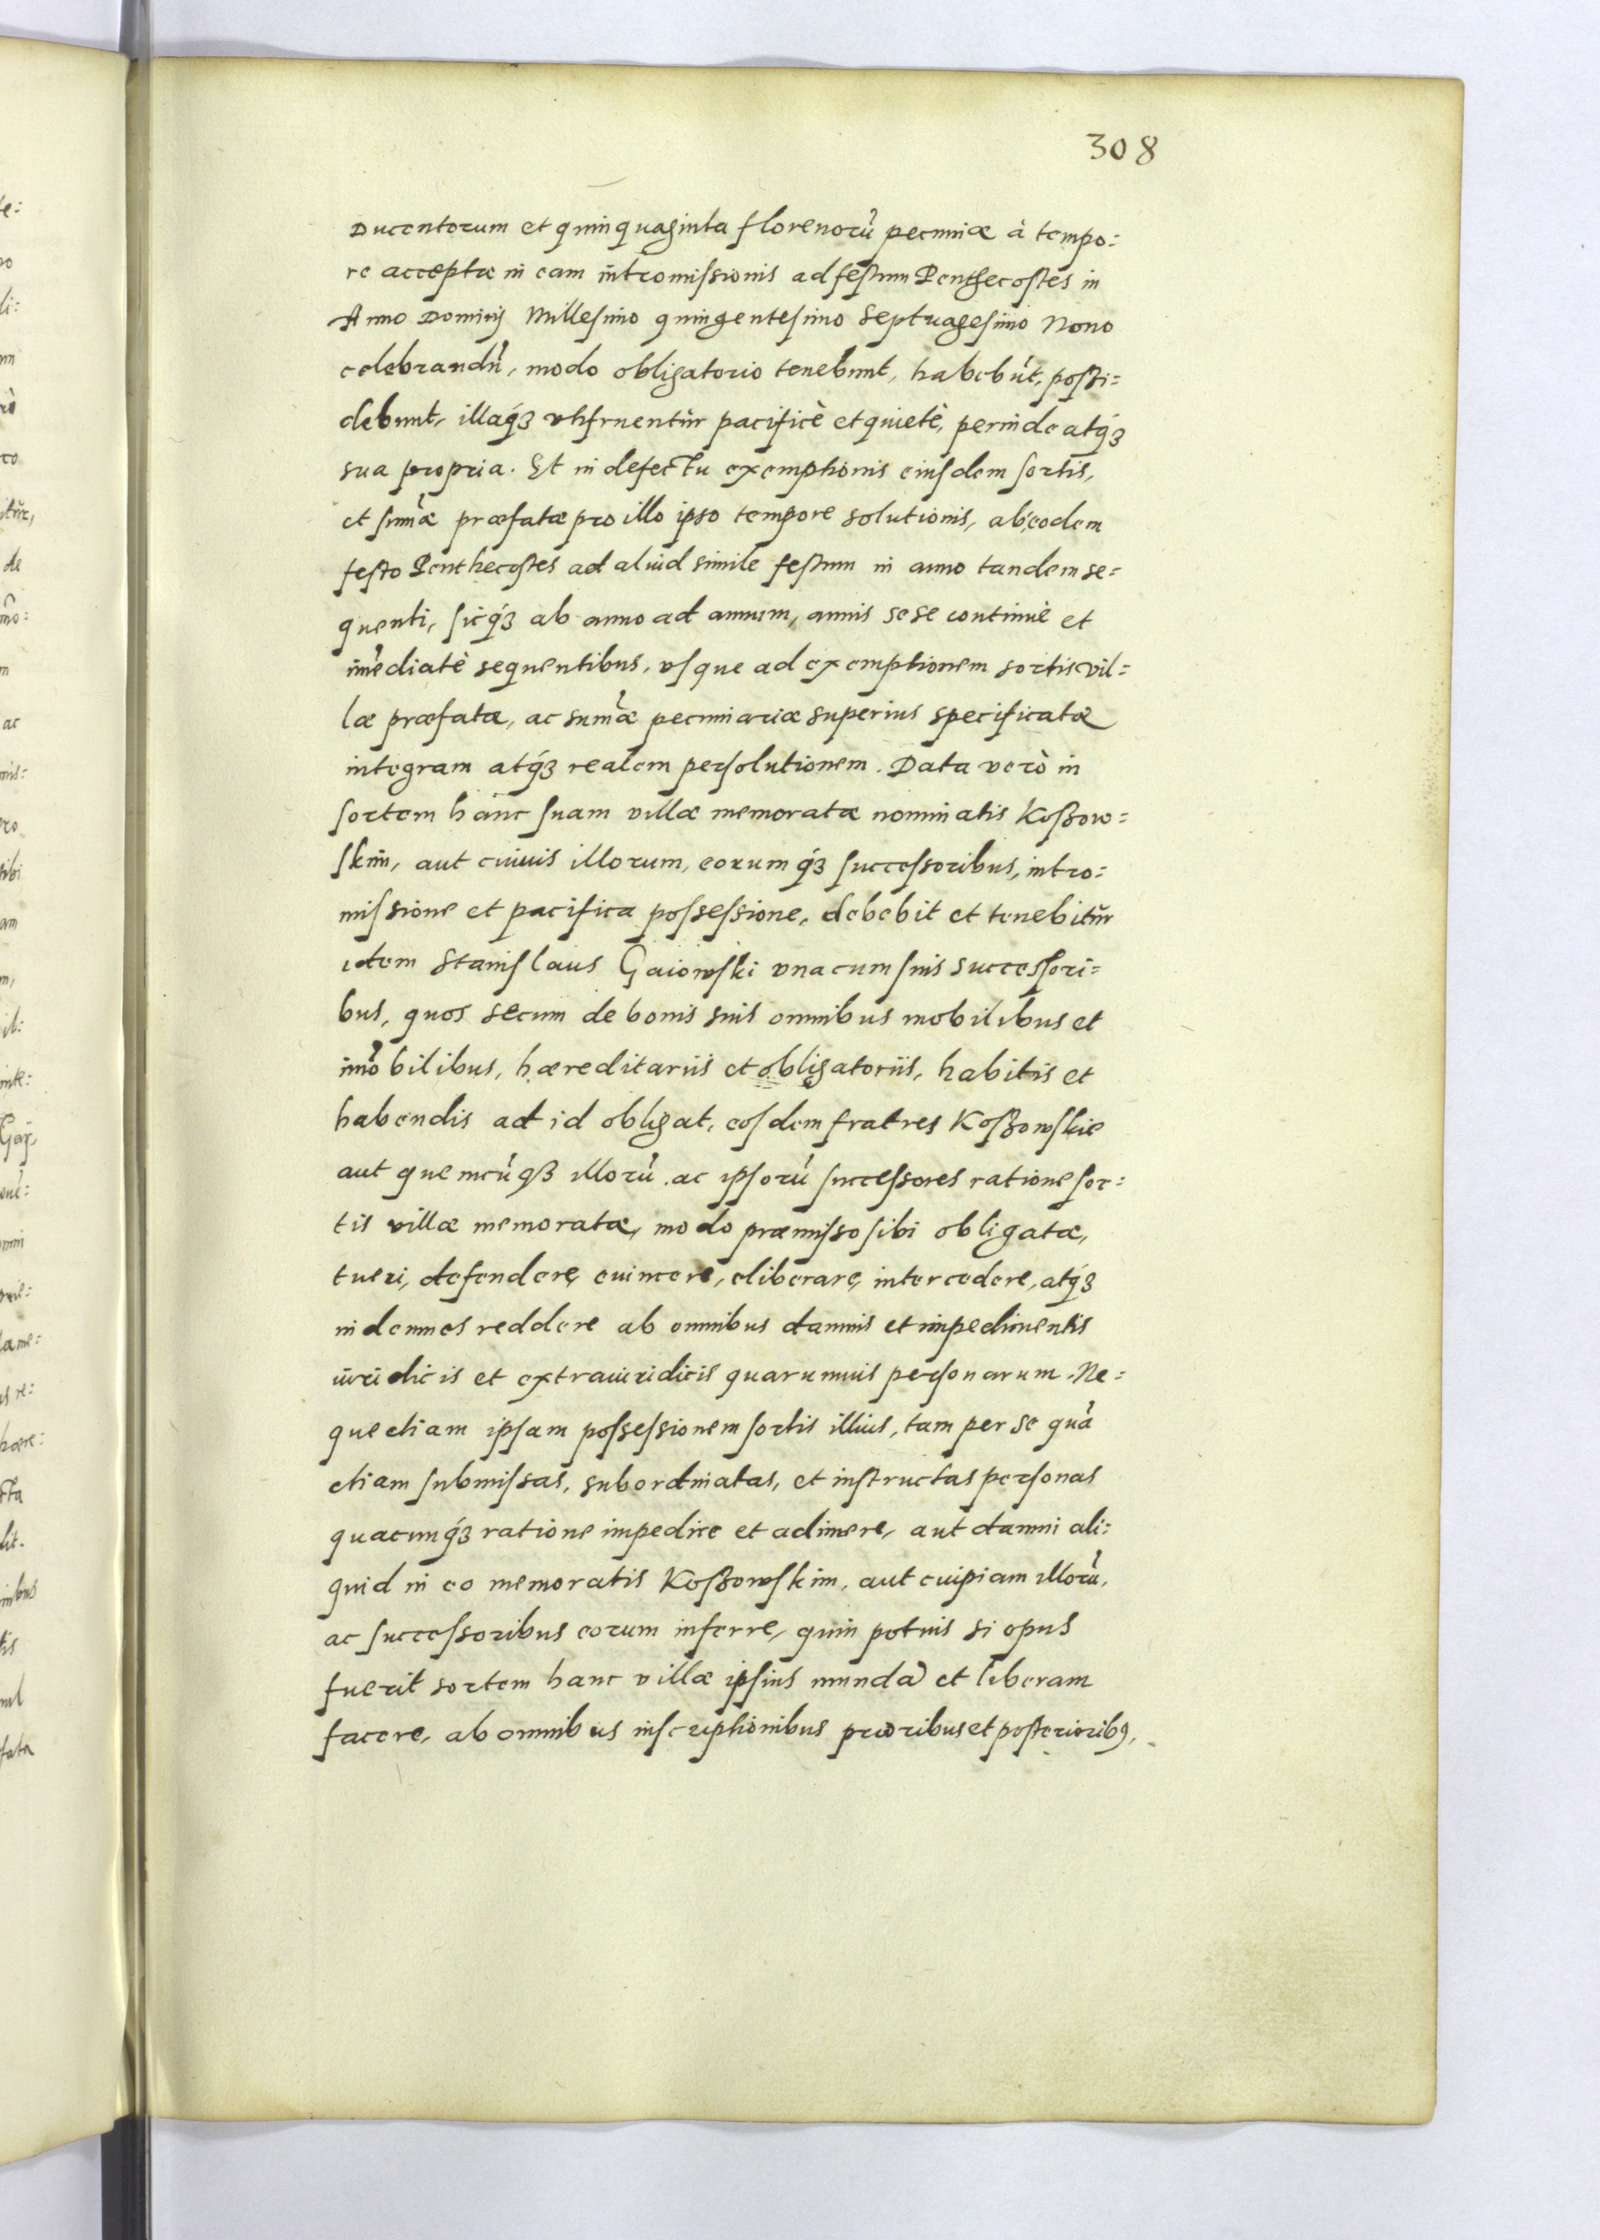 308
Ducentorum et quinquaginta florenorũ pecuniæ à tempo:
re acceptæ in eam intromissionis ad festum Penthecostes in
Anno Dominij Millesimo quingentesimo Septuagesimo Nono
celebrandũ, modo obligatorio tenebunt, habebũt, possi:
debunt, illaq́ʒ vtifruentur pacificè et quietè, perinde atq́ʒ
sua propria. Et in defectu exemptionis eiusdem sortis,
et sum̃æ præfatæ pro illo ipso tempore solutionis, ab eodem
festo Penthecostes ad aliud simile festum in anno tandem se:
quenti, sicq́ʒ ab anno ad annum, annis sese continuè et
im̃ediatè sequentibus, vsque ad exemptionem sortis vil:
læ præfatæ, ac sum̃æ pecuniariæ superius specificatæ
integram atq́ʒ realem persolutionem. Data verò in
sortem hanc suam villæ memoratæ nominatis Koßow:
skim, aut cuiuis illorum, eorumq́ʒ successoribus, intro:
missione et pacifica possessione, debebit et tenebitur
idem Stanislaus Gaiowski vna cum suis successori:
bus, quos secum de bonis suis omnibus mobilibus et
im̃obilibus, hæreditariis et obligatoriis, habitis et
habendis ad id obligat, eosdem fratres Koßowskie
aut quemcũqʒ illorũ ac ipsorũ successores ratione sor:
tis villæ memoratæ, modo præmisso sibi obligatæ,
tueri, defendere, euincere, eliberare, intercedere, atq́ʒ
indemnes reddere ab omnibus damnis et impedimentis
iuridicis et extraiuridicis quarumuis personarum. Ne:
que etiam ipsam possessionem sortis illius, tam per se quã
etiam submissas, subordinatas, et instructas personas
quacunq́ʒ ratione impedire et adimere, aut damni ali:
quid in eo memoratis Koßowskim, aut cuipiam illorũ,
ac successoribus eorum inferre, quin potius si opus
fuerit sortem hanc villæ ipsius mundã et liberam
facere, ab omnibus inscriptionibus prioribus et posterioribꝯ,